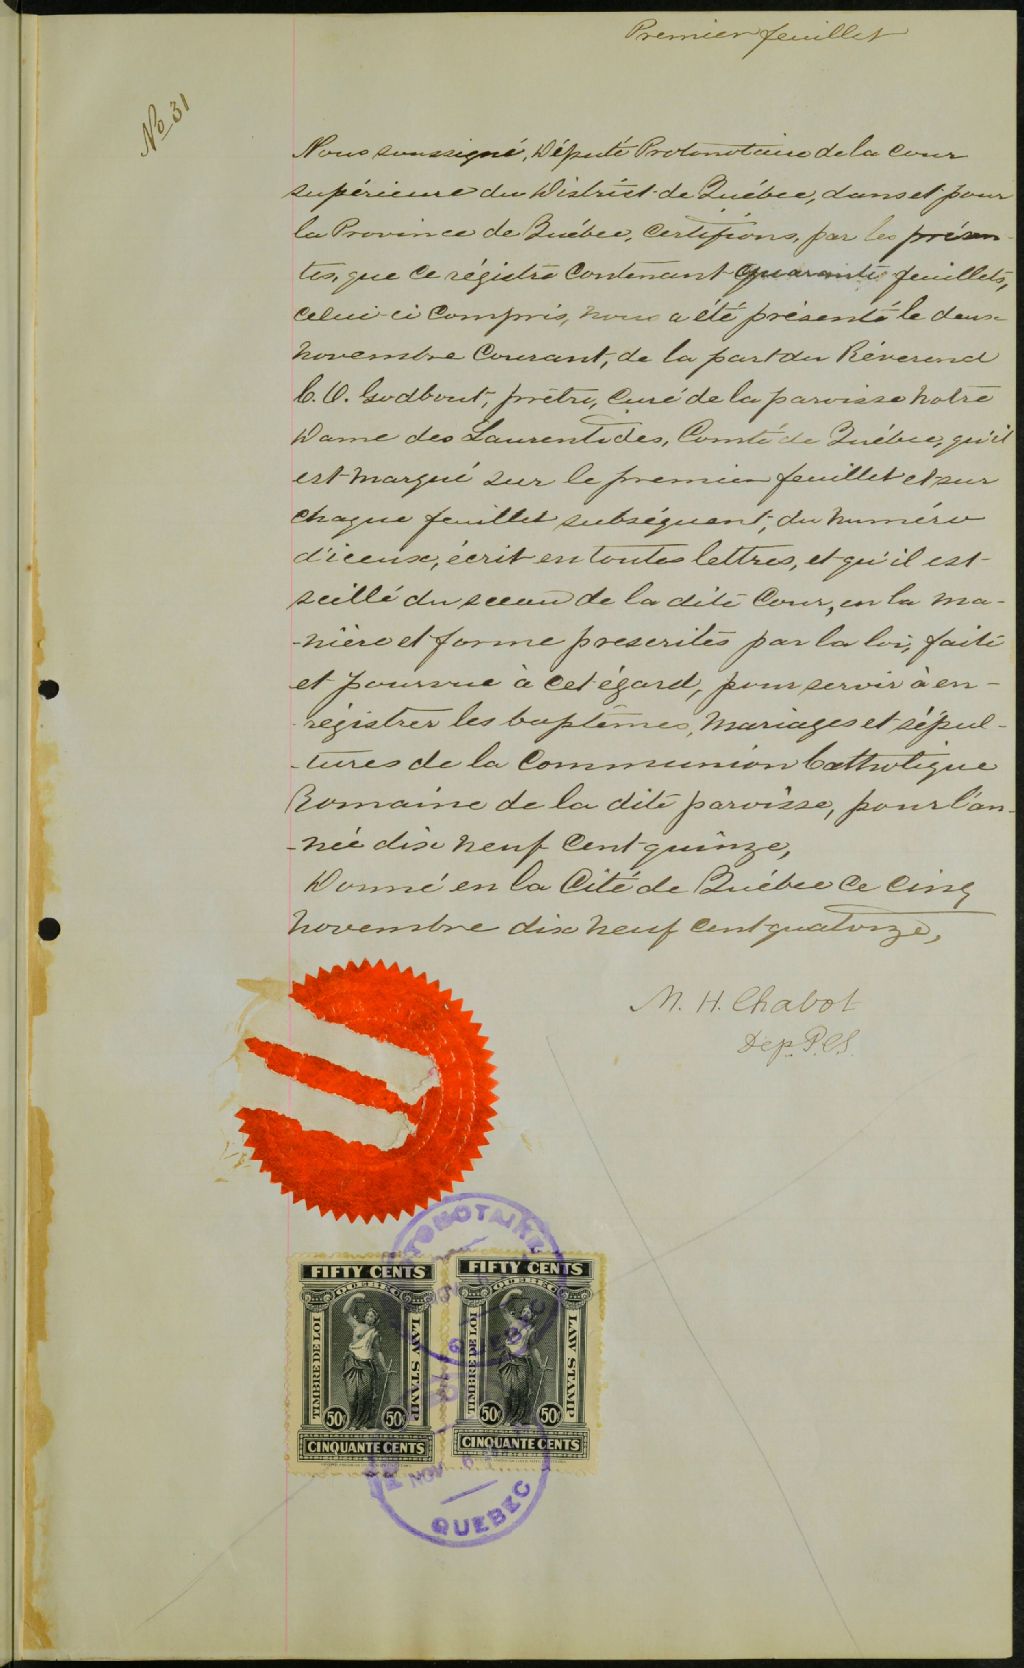 Premier feuillet
No 31
Nous soussigné, Député Protonotaire de la Cour
supérieure du District de Québec, dans et pour
la Province de Québec, Certifions, par les présen-
tes, que ce régistre contenant quarante feuillets,
celui-ci compris, nous a été présenté le deux
novembre courant, de la part du Révérend
C. O. Godbout, prêtre, Curé de la paroisse Notre
Dame des Laurentides, Comté de Québec, qu'il
est marqué sur le premier feuillet et sur
chaque feuillet subséquent, du numéro
d'iceux, écrit en toutes lettres, et qu'il est
scellé du sceau de la dite Cour, en la ma-
-nière et forme prescrites par la loi, faite
et pourvue à cet égard, pour servir à en-
-régistrer les baptêmes, mariages et sépul-
-tures de la Communion Catholique
Romaine de la dite paroisse, pour l'an-
-née dix neuf cent quinze,
Donné en la Cité de Québec ce cinq
novembre dix neuf cent quatorze,
M. H. Chabot
Dep. P.C.S.
FIFTY CENTS
QUEBEC
TIMBRE DE LOI
LAW STAMP
50
50
CINQUANTE CENTS
FIFTY CENTS
QUEBEC
TIMBRE DE LOI
LAW STAMP
50
50
CINQUANTE CENTS
NOV
QUEBEC
NOV 6
QUEBEC